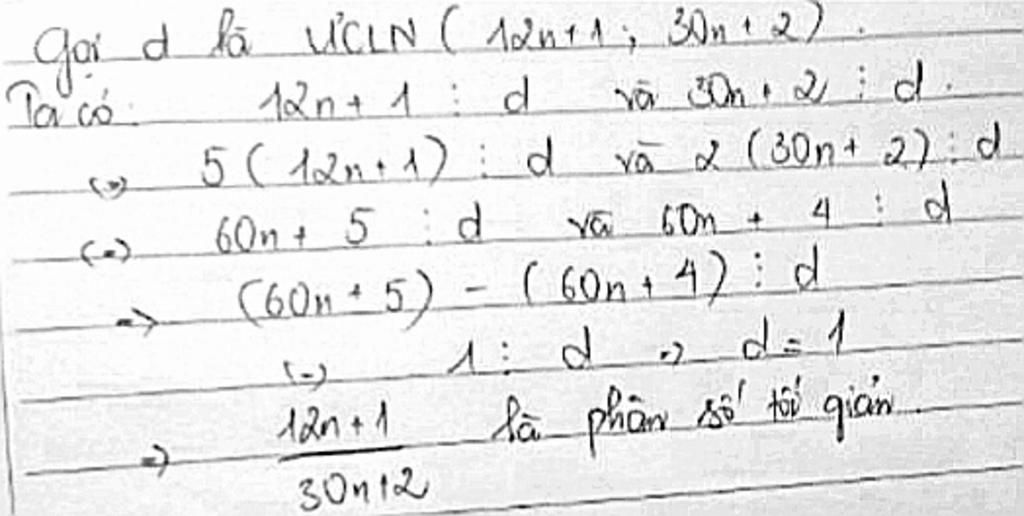 Gọi d là ƯCLN ( 12n+1 ; 30n+2 ).
Ta có: 12n+1 ⋮ d và 30n+2 ⋮ d.
(=) 5(12n+1) ⋮ d và 2(30n+2) ⋮ d
(=) 60n+5 ⋮ d và 60n+4 ⋮ d
=> (60n+5) - (60n+4) ⋮ d
(=) 1 ⋮ d => d=1
=> 12n+1 là phân số tối giản.
30n+2